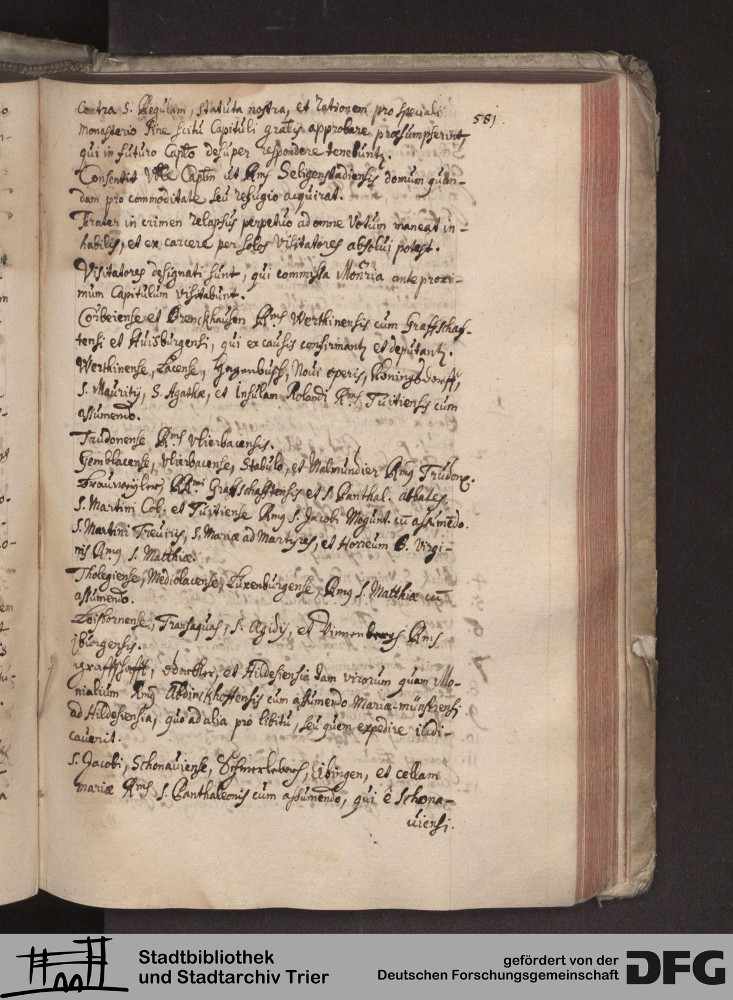 581
Contra S. Regulam, statuta nostra, et rationem pro speciali
monasterio sine scitu Capituli gratis approbare præsumpserint,
qui in futuro Caplo desuper respondere tenebuntr.
Consentit Vble Caplm ut Rms Seligenstadiensis domum quan-
dam pro commoditate seu refugio acquirat.
Frater in crimen relapsus perpetuo ad omne Votum maneat in-
habilis, et ex carcere per solos visitatores absolui potest.
Visitatores designati sunt, qui commissa Monria ante proxi-
mum Capitulum visitabunt.
Corbeiense et Brenckhausen Rms Werthinensis cum Graffschaf-
tensi et Huisburgensi, qui ex causis confirmantr et deputantr.
Werthinense, Lacense, Hagenbusch, Noui operis, Königsdorff,
S. Mauritij, S. Agathæ, et Insulam Rolandi Rms Tuitiensis cum
assumendo.
Trudonense Rms Vlierbacensis.
Gemblacense, Vlierbacense, Stabulo, et Malmundier Rms Trudon.
Brauweylers RRmi Graffschafftensis et S. Panthal. abbates.
S. Martini Col. et Tuitiense Rms S. Jacobi Mogunt. cū assumēdo.
S. Martini Treuiris, S. Mariæ ad Martyres, et Horreum B. Virgi-
nis Rms S. Matthiæ.
Tholegiense, Mediolacense, Luxenburgense, Rms S. Matthiæ cū
assumendo.
Lisbornense, Transaquas, S. Ægidij, et Vinnenbergs Rms
Jburgensis.
Graffschafft, Odacker, et Hildesiensia tam virorum quam Mo-
nialium Rms Abdinckhoffensis cum assumendo Mariæ-münstrensi
ad Hildesiensia, quo ad alia pro libitu, seu quem expedire iudi-
cauerit.
S. Jacobi, Schonauiense, Schmerlebach, Eibingen, et cellam
mariæ Rms S. Panthaleonis cum assumendo, qui è Schona-
uiensi.
Stadtbibliothek
und Stadtarchiv Trier
gefördert von der
Deutschen Forschungsgemeinschaft
DFG